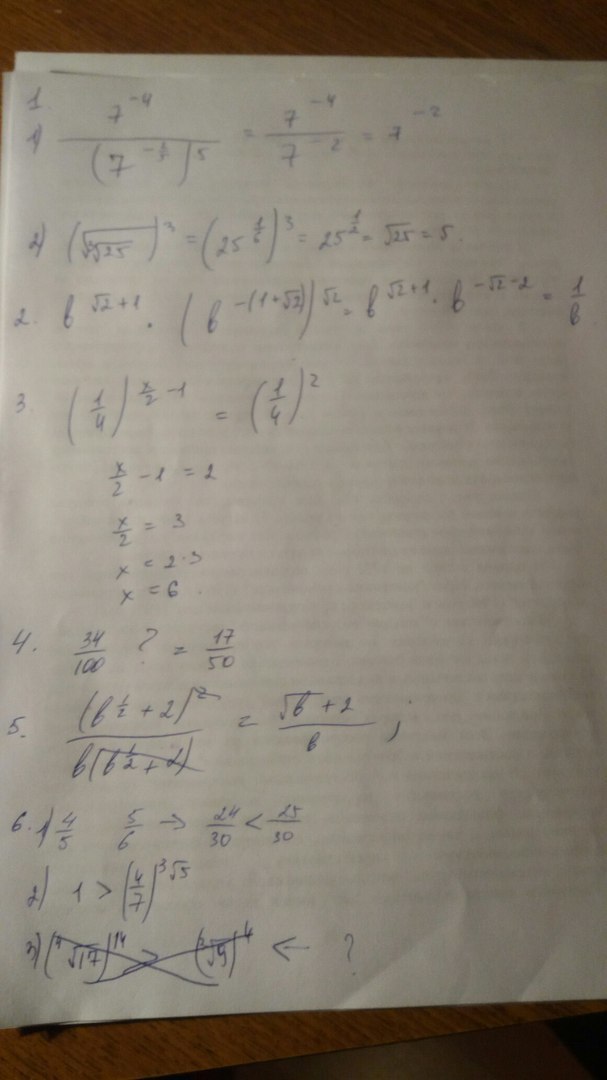 1.
1) 7^-4 / (7^-)^5 = 7^-4 / 7^-2 = 7^-2
2) (√∛25)^3 = (25^1/6)^3 = 25^1/2 = √25 = 5.
2. b^√2+1 · (b^-(1+√2))^√2 = b^√2+1 · b^-√2-2 = 1/b
3. (1/4)^x/2-1 = (1/4)^2
x/2 - 1 = 2
x/2 = 3
x = 2·3
x = 6.
4. 34/100 ? = 17/50
5. (b^1/2 + 2)^2 / b(b^1/2 + 2) = √b + 2 / b ;
6. 1) 4/5 5/6 → 24/30 < 25/30
2) 1 > (4/7)^3√5
3) (√17)^14 > (√9)^4 ← ?